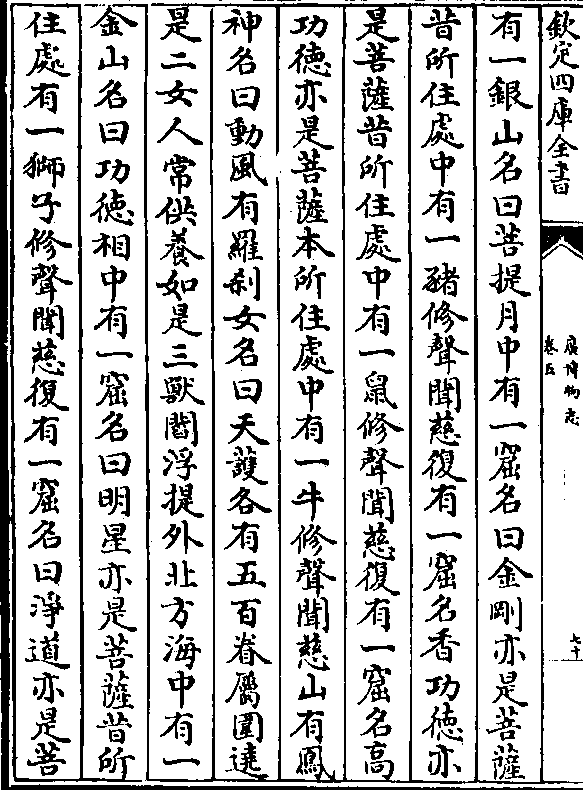 欽定四庫全書
廣博物志
卷五
七十
有一銀山名曰菩提月中有一窟名曰金剛亦是菩薩
昔所住處中有一豬修聲聞慈復有一窟名香功徳亦
是菩薩昔所住處中有一鼠修聲聞慈復有一窟名高
功徳亦是菩薩本所住處中有一牛修聲聞慈山有鳳
神名曰動風有羅刹女名曰天䕶各有五百眷屬圍遶
是二女人常供養如是三獸閻浮提外北方海中有一
金山名曰功徳相中有一窟名曰明星亦是菩薩昔所
住處有一獅子修聲聞慈復有一窟名曰淨道亦是菩